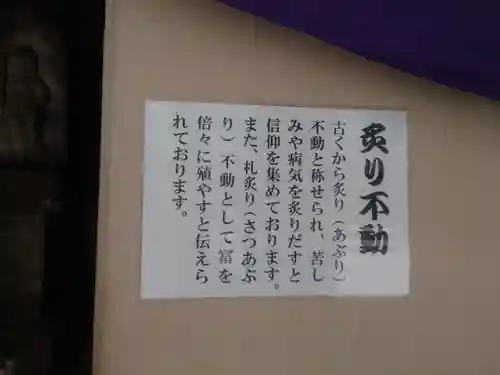 炙り不動
古くから炙り（あぶり）
不動と称せられ、苦し
みや病気を炙りだすと
信仰を集めております。
また、札炙り（さつあぶ
り）不動として富を
倍々に殖やすと伝えら
れております。